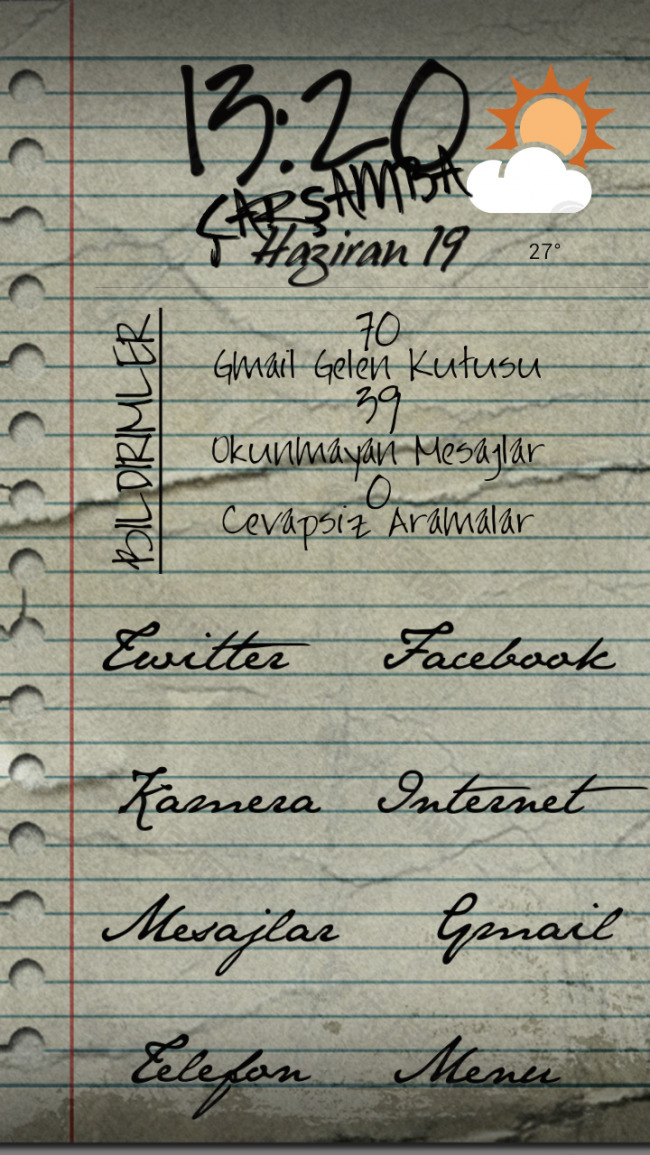 13:20
ÇARŞAMBA
Haziran 19
27°
BILDIRIMLER
70
Gmail Gelen Kutusu
39
Okunmayan Mesajlar
0
Cevapsiz Aramalar
Twitter Facebook
Kamera Internet
Mesajlar Gmail
Telefon Menu